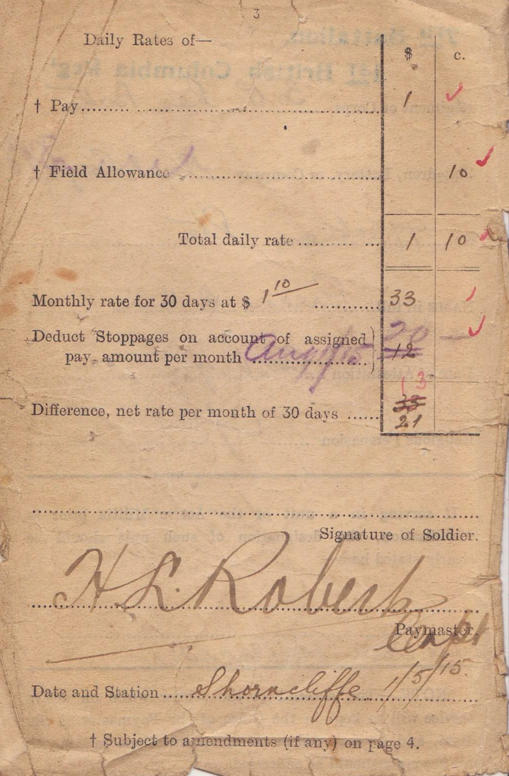 3
Daily Rates of—
$ c.
† Pay 1
† Field Allowance 10
Total daily rate 1 10
Monthly rate for 30 days at $ 1 10 33
Deduct Stoppages on account of assigned 20 —
pay, amount per month Aug/15 12
13
Difference, net rate per month of 30 days
21
Signature of Soldier.
H L. Roberts
Paymaster.
Capt
Date and Station Shorncliffe 1/5/15.
† Subject to amendments (if any) on page 4.